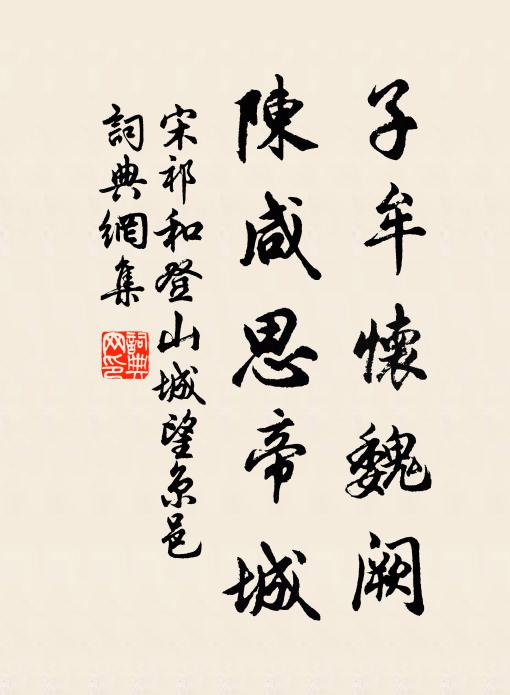 子牟懷魏阙
陳咸思帝城
宋祁和登山城望京邑
詞典網集
詞典网印